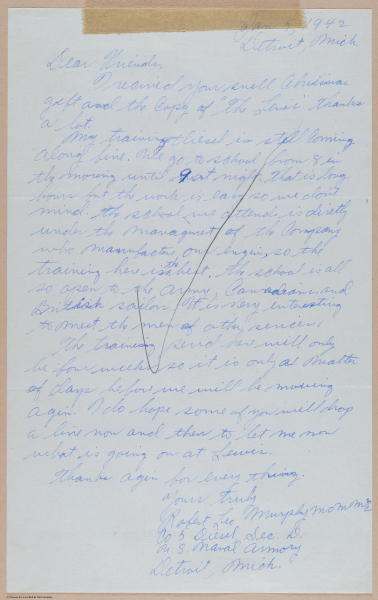 Jan 5, 1942
Detroit, Mich
Dear Friends
I received your swell Christmas
gift and the copy of "The Lewis" thanks
a lot.
My training Diesel is still coming
along fine. We go to school from 8 in
the morning until 9 at night, that is long
hours but the work is easy so we don't
mind. The school we attend, is directly
under the managment of the Company
who manufacture our engine, so, the
training here is the best. The school is all
so open to the Army, Canadians and
British sailor. It is very interesting
to meet the men of other services.
The training here will only
be four weeks so it is only a matter
of days before we will be moveing
again. I do hope some of you will drop
a line now and then to let me now
what is going on at Lewis.
Thanks agin for every thing.
Yours truly
Robert Leo Murphy MoMM 2/c
Co 5 Diesel Sec. D.
U.S. Naval Armory
Detroit, Mich.